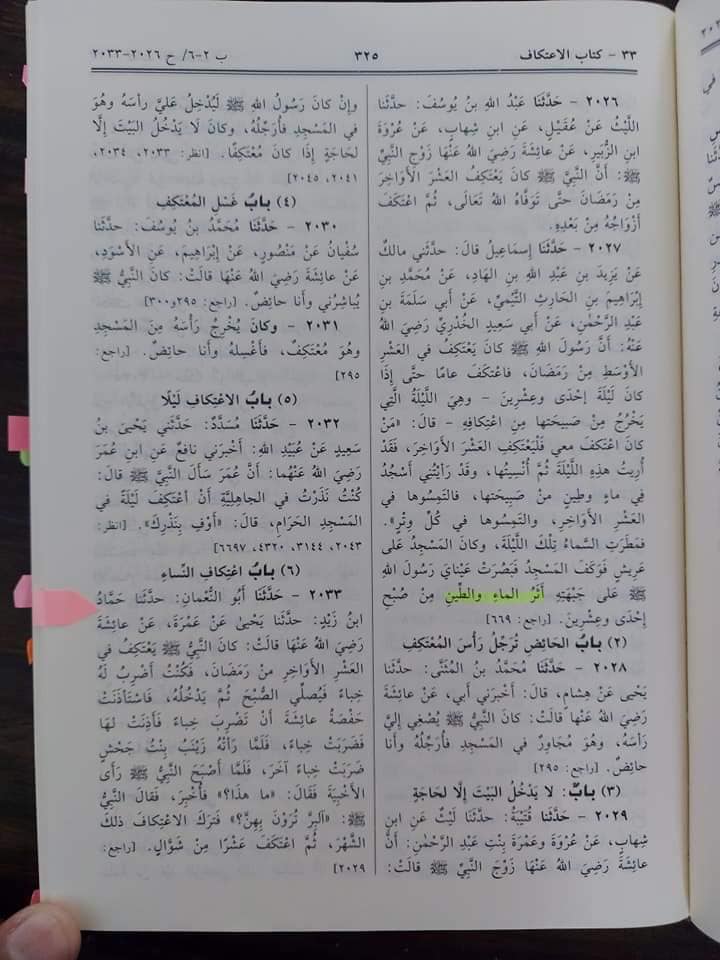 ٣٣ - كتاب الاعتكاف
٣٢٥
ب ٢-٦/ ح ٢٠٢٦-٢٠٣٣
٢٠٢٦ - حَدَّثَنَا عَبْدُ اللهِ بنُ يُوسُفَ: حدَّثنا
اللَّيْثُ عَنْ عُقَيْلٍ، عَنِ ابنِ شِهابٍ، عَنْ عُرْوَةَ
ابنِ الزُّبَيرِ، عَنْ عائِشَةَ رَضِيَ اللهُ عَنْهَا زَوْجِ النَّبيِّ
ﷺ: أَنَّ النَّبِيَّ ﷺ كَانَ يَعْتَكِفُ العَشْرَ الأَوَاخِرَ
مِنْ رَمَضَانَ حتَّى تَوَفَّاهُ اللهُ تَعَالَى، ثُمَّ اعْتَكَفَ
أَزْوَاجُهُ مِنْ بَعْدِهِ.
٢٠٢٧ - حَدَّثَنَا إِسْماعِيلُ قالَ: حدَّثَني مالكٌ
عَنْ يَزِيدَ بنِ عَبْدِ اللهِ بنِ الهَادِ، عَنْ مُحَمَّدِ بنِ
إِبْرَاهِيمَ بنِ الحَارِثِ التَّيْمِيِّ، عَنْ أَبي سَلَمَةَ بنِ
عَبْدِ الرَّحْمٰنِ، عَنْ أَبي سَعِيدٍ الخُدْرِيِّ رَضِيَ اللهُ
عَنْهُ: أَنَّ رَسُولَ اللهِ ﷺ كانَ يَعْتَكِفُ في العَشْرِ
الأَوْسَطِ مِنْ رَمَضَانَ، فاعْتَكَفَ عامًا حتَّى إِذَا
كانَ لَيْلَةَ إِحْدَى وعِشْرِينَ - وهِيَ اللَّيْلَةُ الَّتِي
يَخْرُجُ مِنْ صَبِيحَتِها مِنِ اعْتِكافِهِ - قَالَ: «مَنْ
كانَ اعْتَكَفَ معي فَلْيَعْتَكِفِ العَشْرَ الأَوَاخِرَ، فَقَدْ
أُرِيتُ هذِهِ اللَّيْلَةَ ثُمَّ أُنْسِيتُها، وقَدْ رَأَيْتُنِي أَسْجُدُ
في ماءٍ وطِينٍ مِنْ صَبِيحَتِها، فالتَمِسُوها في
العَشْرِ الأَوَاخِرِ، والتَمِسُوها في كُلِّ وِتْرٍ».
فمَطَرَتِ السَّماءُ تِلْكَ اللَّيْلَةَ، وكانَ المَسْجِدُ عَلى
عَرِيشٍ فَوَكَفَ المَسْجِدُ فَبَصُرَتْ عَيْنايَ رَسُولَ اللهِ
ﷺ عَلى جَبْهَتِهِ أَثَرُ الماءِ والطِّينِ مِنْ صُبْحِ
إِحْدَى وعِشْرِينَ. [راجع: ٦٦٩]
(٢) بابُ الحَائِضِ تُرَجِّلُ رَأْسَ المُعْتَكِفِ
٢٠٢٨ - حَدَّثَنَا مُحَمَّدُ بنُ المُثَنَّى: حدَّثنا
يَحْيى عَنْ هِشامٍ، قالَ: أَخْبَرَني أَبي، عَنْ عائِشَةَ
رَضِيَ اللهُ عَنْهَا قالَتْ: كانَ النَّبيُّ ﷺ يُصْغِي إليَّ
رَأسَهُ، وهُوَ مُجاوِرٌ في المَسْجِدِ فأُرَجِّلُهُ وأَنا
حائِضٌ. [راجع: ٢٩٥]
(٣) بابٌ: لا يَدْخُلُ البَيْتَ إِلَّا لحَاجَةٍ
٢٠٢٩ - حَدَّثَنَا قُتَيْبَةُ: حدَّثنا لَيْثٌ عَنِ ابنِ
شِهابٍ، عَنْ عُرْوَةَ وعَمْرَةَ بِنْتِ عَبْدِ الرَّحْمٰنِ: أَنَّ
عائِشَةَ رَضِيَ اللهُ عَنْهَا زَوْجَ النَّبيِّ ﷺ قالَتْ:
وإِنْ كانَ رَسُولُ اللهِ ﷺ لَيُدْخِلُ عَلَيَّ رأسَهُ وهُوَ
في المَسْجِدِ فأُرَجِّلُهُ، وكانَ لَا يَدْخُلُ البَيْتَ إِلَّا
لحَاجَةٍ إِذَا كانَ مُعْتَكِفًا. [انظر: ٢٠٣٣، ٢٠٣٤،
٢٠٤١، ٢٠٤٥]
(٤) بابُ غَسْلِ المُعْتَكِفِ
٢٠٣٠ - حَدَّثَنَا مُحَمَّدُ بنُ يُوسُفَ: حدَّثنا
سُفْيانُ عَنْ مَنْصُورٍ، عَنْ إِبْرَاهِيمَ، عَنِ الأَسْوَدِ،
عَنْ عائِشَةَ رَضِيَ اللهُ عَنْهَا قالَتْ: كانَ النَّبيُّ ﷺ
يُباشِرُني وأَنا حائِضٌ. [راجع: ٢٩٥و٣٠٠]
٢٠٣١ - وكانَ يُخْرِجُ رَأْسَهُ مِنَ المَسْجِدِ
وهُوَ مُعْتَكِفٌ، فأَغْسِلُهُ وأَنا حائِضٌ. [راجع:
٢٩٥]
(٥) بابُ الاعْتِكافِ لَيْلًا
٢٠٣٢ - حَدَّثَنَا مُسَدَّدٌ: حَدَّثَني يَحْيَى بنُ
سَعِيدٍ عَنْ عُبَيْدِ اللهِ: أَخْبَرني نافِعٌ عَنِ ابنِ عُمَرَ
رَضِيَ اللهُ عَنْهُما: أَنَّ عُمَرَ سَأَلَ النَّبيَّ ﷺ قالَ:
كُنْتُ نَذَرْتُ في الجاهِلِيَّةِ أَنْ أَعْتَكِفَ لَيْلَةً في
المَسْجِدِ الحَرَامِ، قالَ: «أَوْفِ بِنَذْرِكَ». [انظر:
٢٠٤٣، ٣١٤٤، ٤٣٢٠، ٦٦٩٧]
(٦) بابُ اعْتِكافِ النِّساءِ
٢٠٣٣ - حَدَّثَنَا أَبُو النُّعْمانِ: حدَّثنا حَمَّادُ
ابنُ زَيْدٍ: حدَّثنا يَحْيىٰ عَنْ عَمْرَةَ، عَنْ عائِشَةَ
رَضِيَ اللهُ عَنْهَا قالَتْ: كانَ النَّبيُّ ﷺ يَعْتَكِفُ في
العَشْرِ الأَوَاخِرِ منْ رَمَضانَ، فَكُنْتُ أَضْرِبُ لَهُ
خِباءً فَيُصَلِّي الصُّبْحَ ثُمَّ يَدْخُلُهُ، فَاسْتَأْذَنَتْ
حَفْصَةُ عائِشَةَ أَنْ تَضْرِبَ خِباءً فأَذِنَتْ لها
فَضَرَبَتْ خِباءً، فَلَمَّا رَأَتْهُ زَيْنَبُ بِنْتُ جَحْشٍ
ضَرَبَتْ خِباءً آخَرَ، فَلَمَّا أَصْبَحَ النَّبيُّ ﷺ رَأَى
الأَخْبِيَةَ فَقَالَ: «ما هذا؟» فأُخْبِرَ، فَقالَ النَّبيُّ
ﷺ: «آلبِرَّ تُرَوْنَ بِهِنَّ؟» فَتَرَكَ الاعْتِكافَ ذلكَ
الشَّهْرَ، ثُمَّ اعْتَكَفَ عَشْرًا مِنْ شَوَّالٍ. [راجع:
٢٠٢٩]